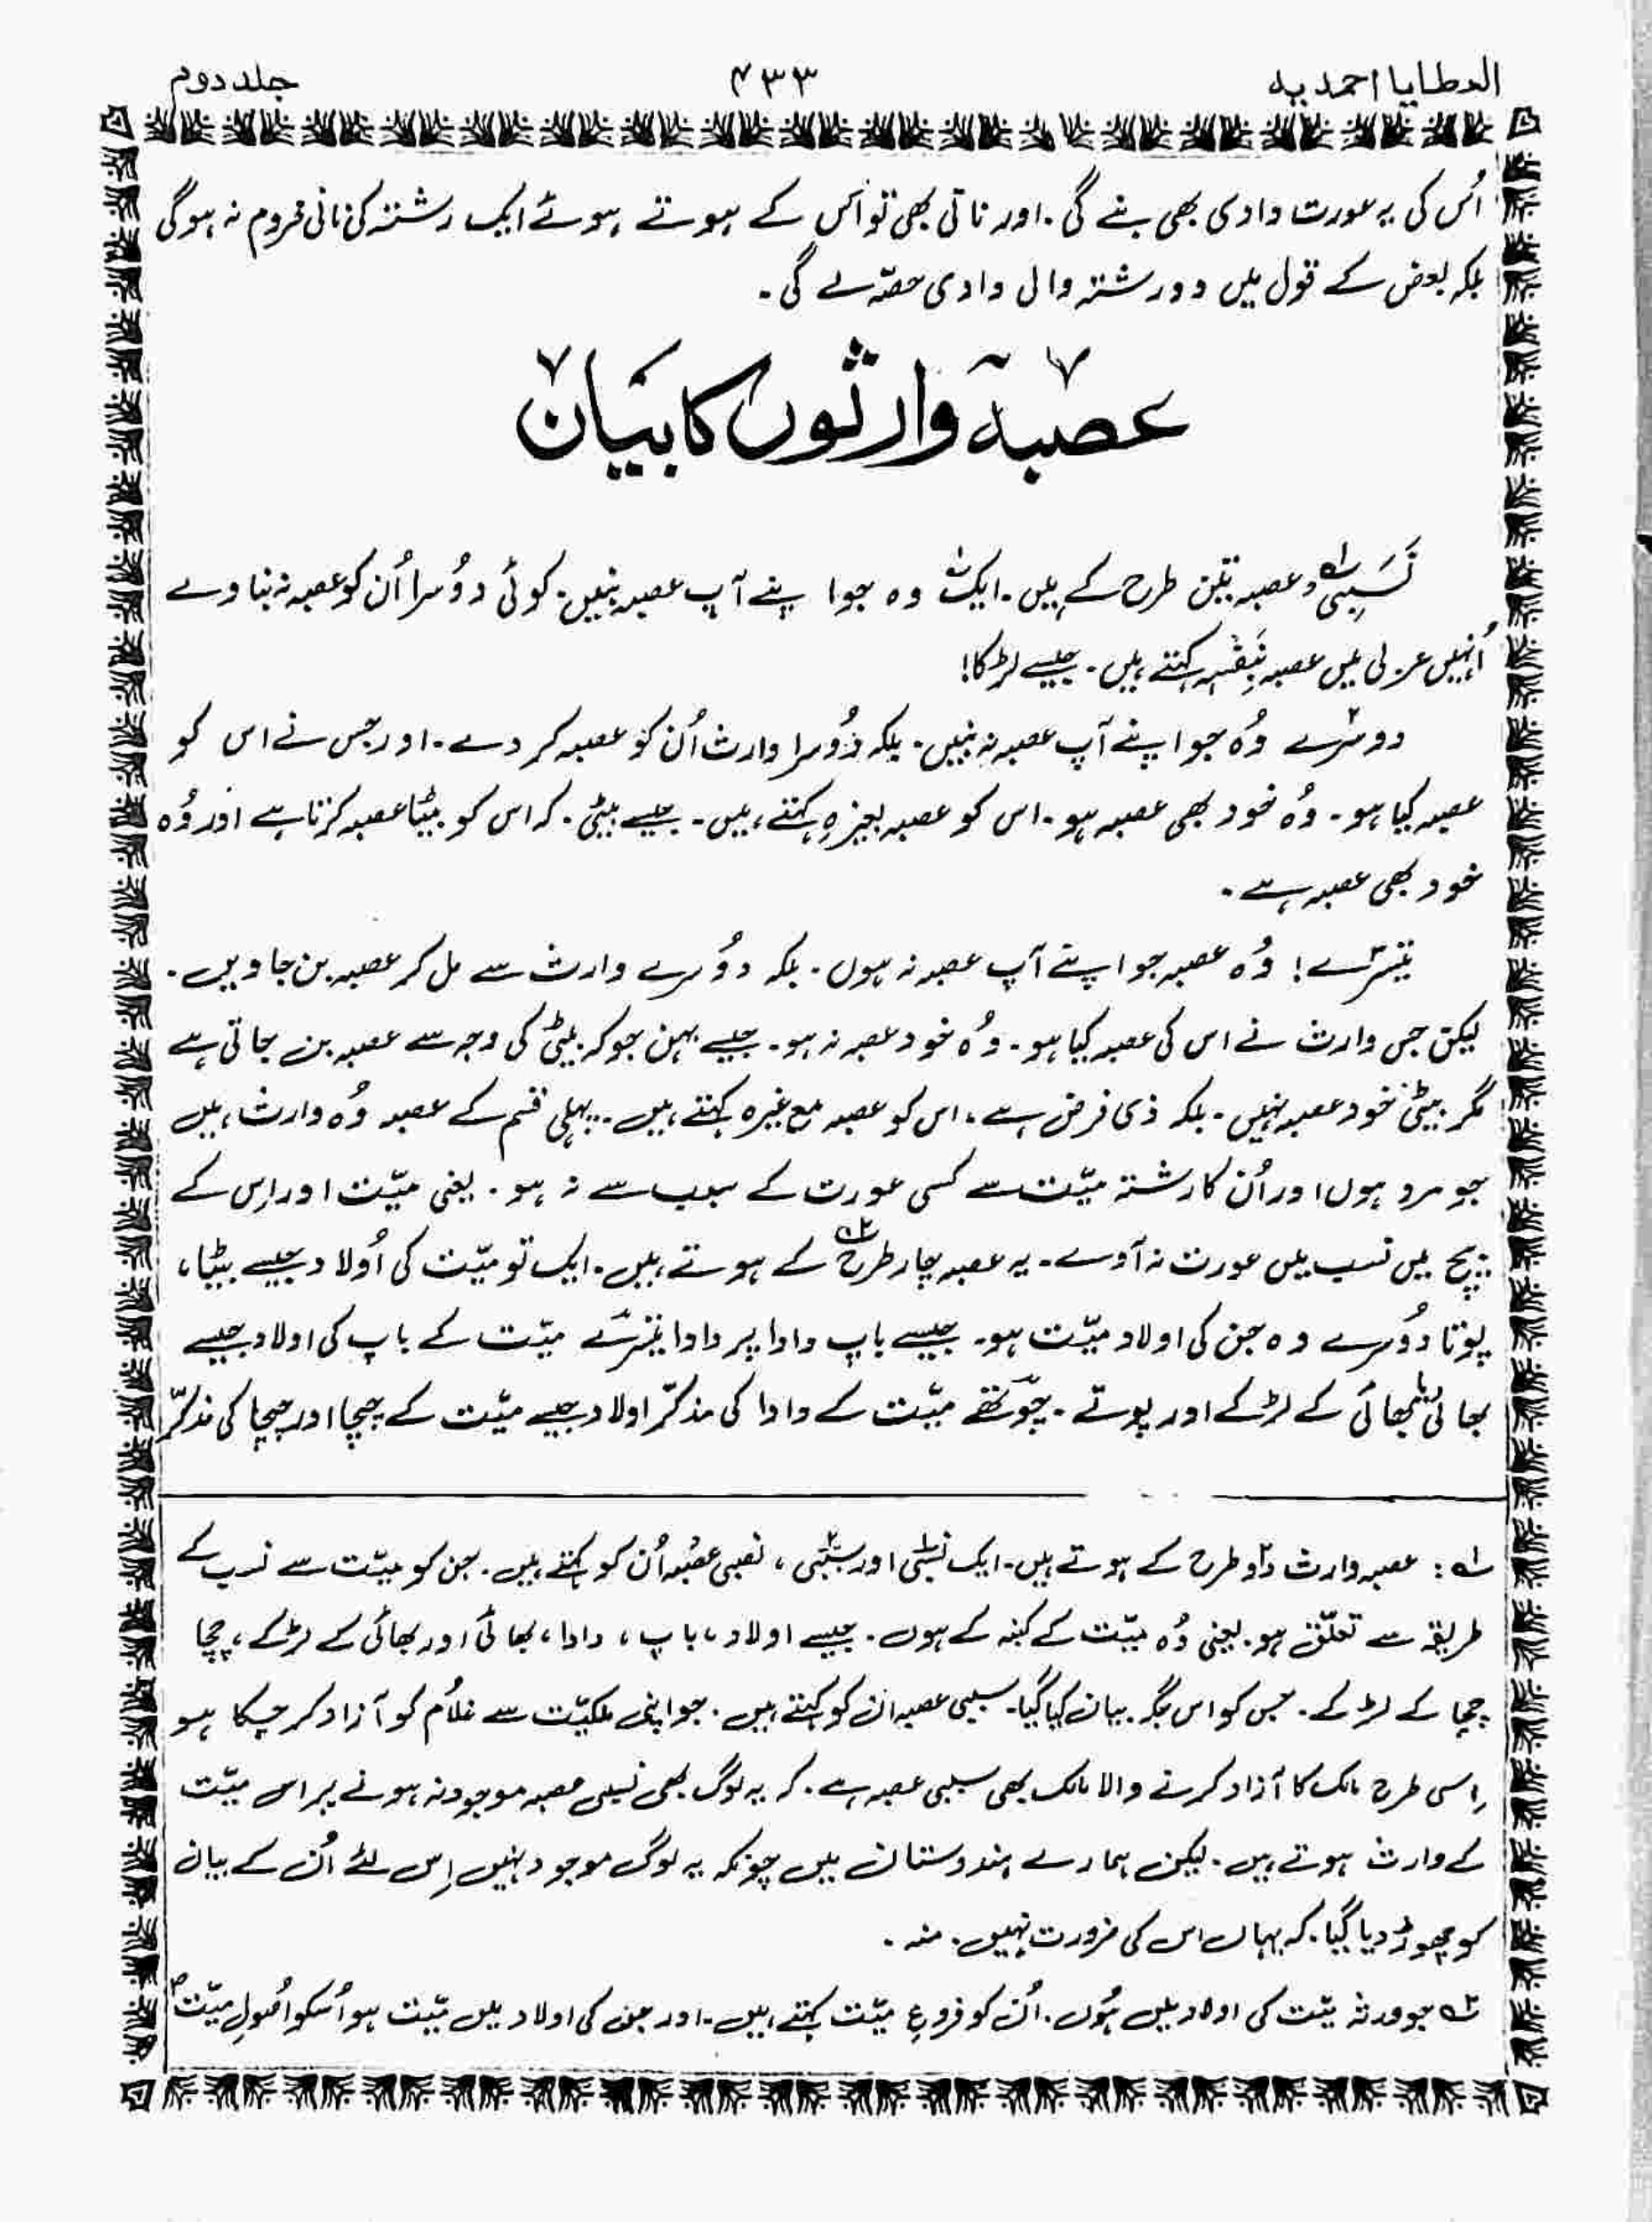 العطایا احمدیہ ۴۳۳ جلد دوم
اُس کی یہ عورت دادی بھی بنے گی۔ اور نانی بھی تو اُس کے ہوتے ہوئے ایک رشتہ کی نانی محروم نہ ہوگی
بلکہ بعض کے قول میں دو رشتہ والی دادی حصّہ لے گی۔
عصبہ وارثوں کا بیان
نَسَبِی۱؎ عصبہ تین طرح کے ہیں۔ ایک۱ وہ جو اپنے آپ عصبہ بنیں۔ کوئی دوُسرا اُن کو عصبہ نہ بناوے
اُنہیں عربی میں عصبہ بَنِفْسِہٖ کہتے ہیں۔ جیسے لڑکا!
دوسرے۲ وُہ جو اپنے آپ عصبہ نہ بنیں۔ بلکہ دُوسرا وارث اُن کو عصبہ کر دے۔ اور جس نے اس کو
عصبہ کیا ہو۔ وُہ خود بھی عصبہ ہو۔ اس کو عصبہ بغیرہٖ کہتے ہیں۔ جیسے بیٹی۔ کہ اس کو بیٹا عصبہ کرتا ہے اور وُہ
خود بھی عصبہ ہے۔
تیسرے۳! وُہ عصبہ جو اپنے آپ عصبہ نہ ہوں۔ بلکہ دوُسرے وارث سے مل کر عصبہ بن جاویں۔
لیکن جس وارث نے اس کی عصبہ کیا ہو۔ وُہ خود عصبہ نہ ہو۔ جیسے بہن جو کہ بیٹی کی وجہ سے عصبہ بن جاتی ہے
مگر بیٹی خود عصبہ نہیں۔ بلکہ ذی فرض ہے، اس کو عصبہ مع غیرہ کہتے ہیں۔ پہلی قسم کے عصبہ وُہ وارث ہیں
جو مرد ہوں اور اُن کا رشتہ میّت سے کسی عورت کے سبب سے نہ ہو۔ یعنی میّت اور اِس کے
بیچ میں نسب میں عورت نہ آوے۔ یہ عصبہ چار طرح۲؎ کے ہوتے ہیں۔ ایک تو میّت کی اُولاد جیسے بیٹا،
پوتا دوُسرے وہ جن کی اولاد میّت ہو۔ جیسے باپ دادا پردادا تیسرے۳ میّت کے باپ کی اولاد جیسے
بھائی یا بھائی کے لڑکے اور پوتے۔ چوتھے۴ میّت کے دادا کی مذکّر اولاد جیسے میّت کے چچا اور چچا کی مذکّر
۱؎: عصبہ وارث دو۲ طرح کے ہوتے ہیں۔ ایک نسبی اور سببی، نسبی عصبہ اُن کو کہتے ہیں۔ جن کو میّت سے نسب کے
طریقہ سے تعلّق ہو۔ یعنی وُہ میّت کے کنبہ کے ہوں۔ جیسے اولاد، باپ، دادا، بھائی اور بھائی کے لڑکے، چچا
چچا کے لڑکے۔ جس کو اس جگہ بیان کیا گیا۔ سببی عصبہ ان کو کہتے ہیں۔ جو اپنی ملکیّت سے غلاُم کو آزاد کر چکا ہو
اِسی طرح مالک کا آزاد کرنے والا مالک بھی سببی عصبہ ہے۔ کہ یہ لوگ بھی نسبی عصبہ موجود نہ ہونے پر اس میّت
کے وارث ہوتے ہیں۔ لیکن ہمارے ہندوستان میں چونکہ یہ لوگ موجود نہیں اِس لئے اُن کے بیان
کو چھوڑ دیا گیا۔ کہ یہاں اس کی ضرورت نہیں۔ منہ۔
۲؎ جو ورثہ میّت کی اولاد میں ہُوں۔ اُن کو فروعِ میّت کہتے ہیں۔ اور جن کی اولاد میں میّت ہو اُسکو اُصُولِ میّت